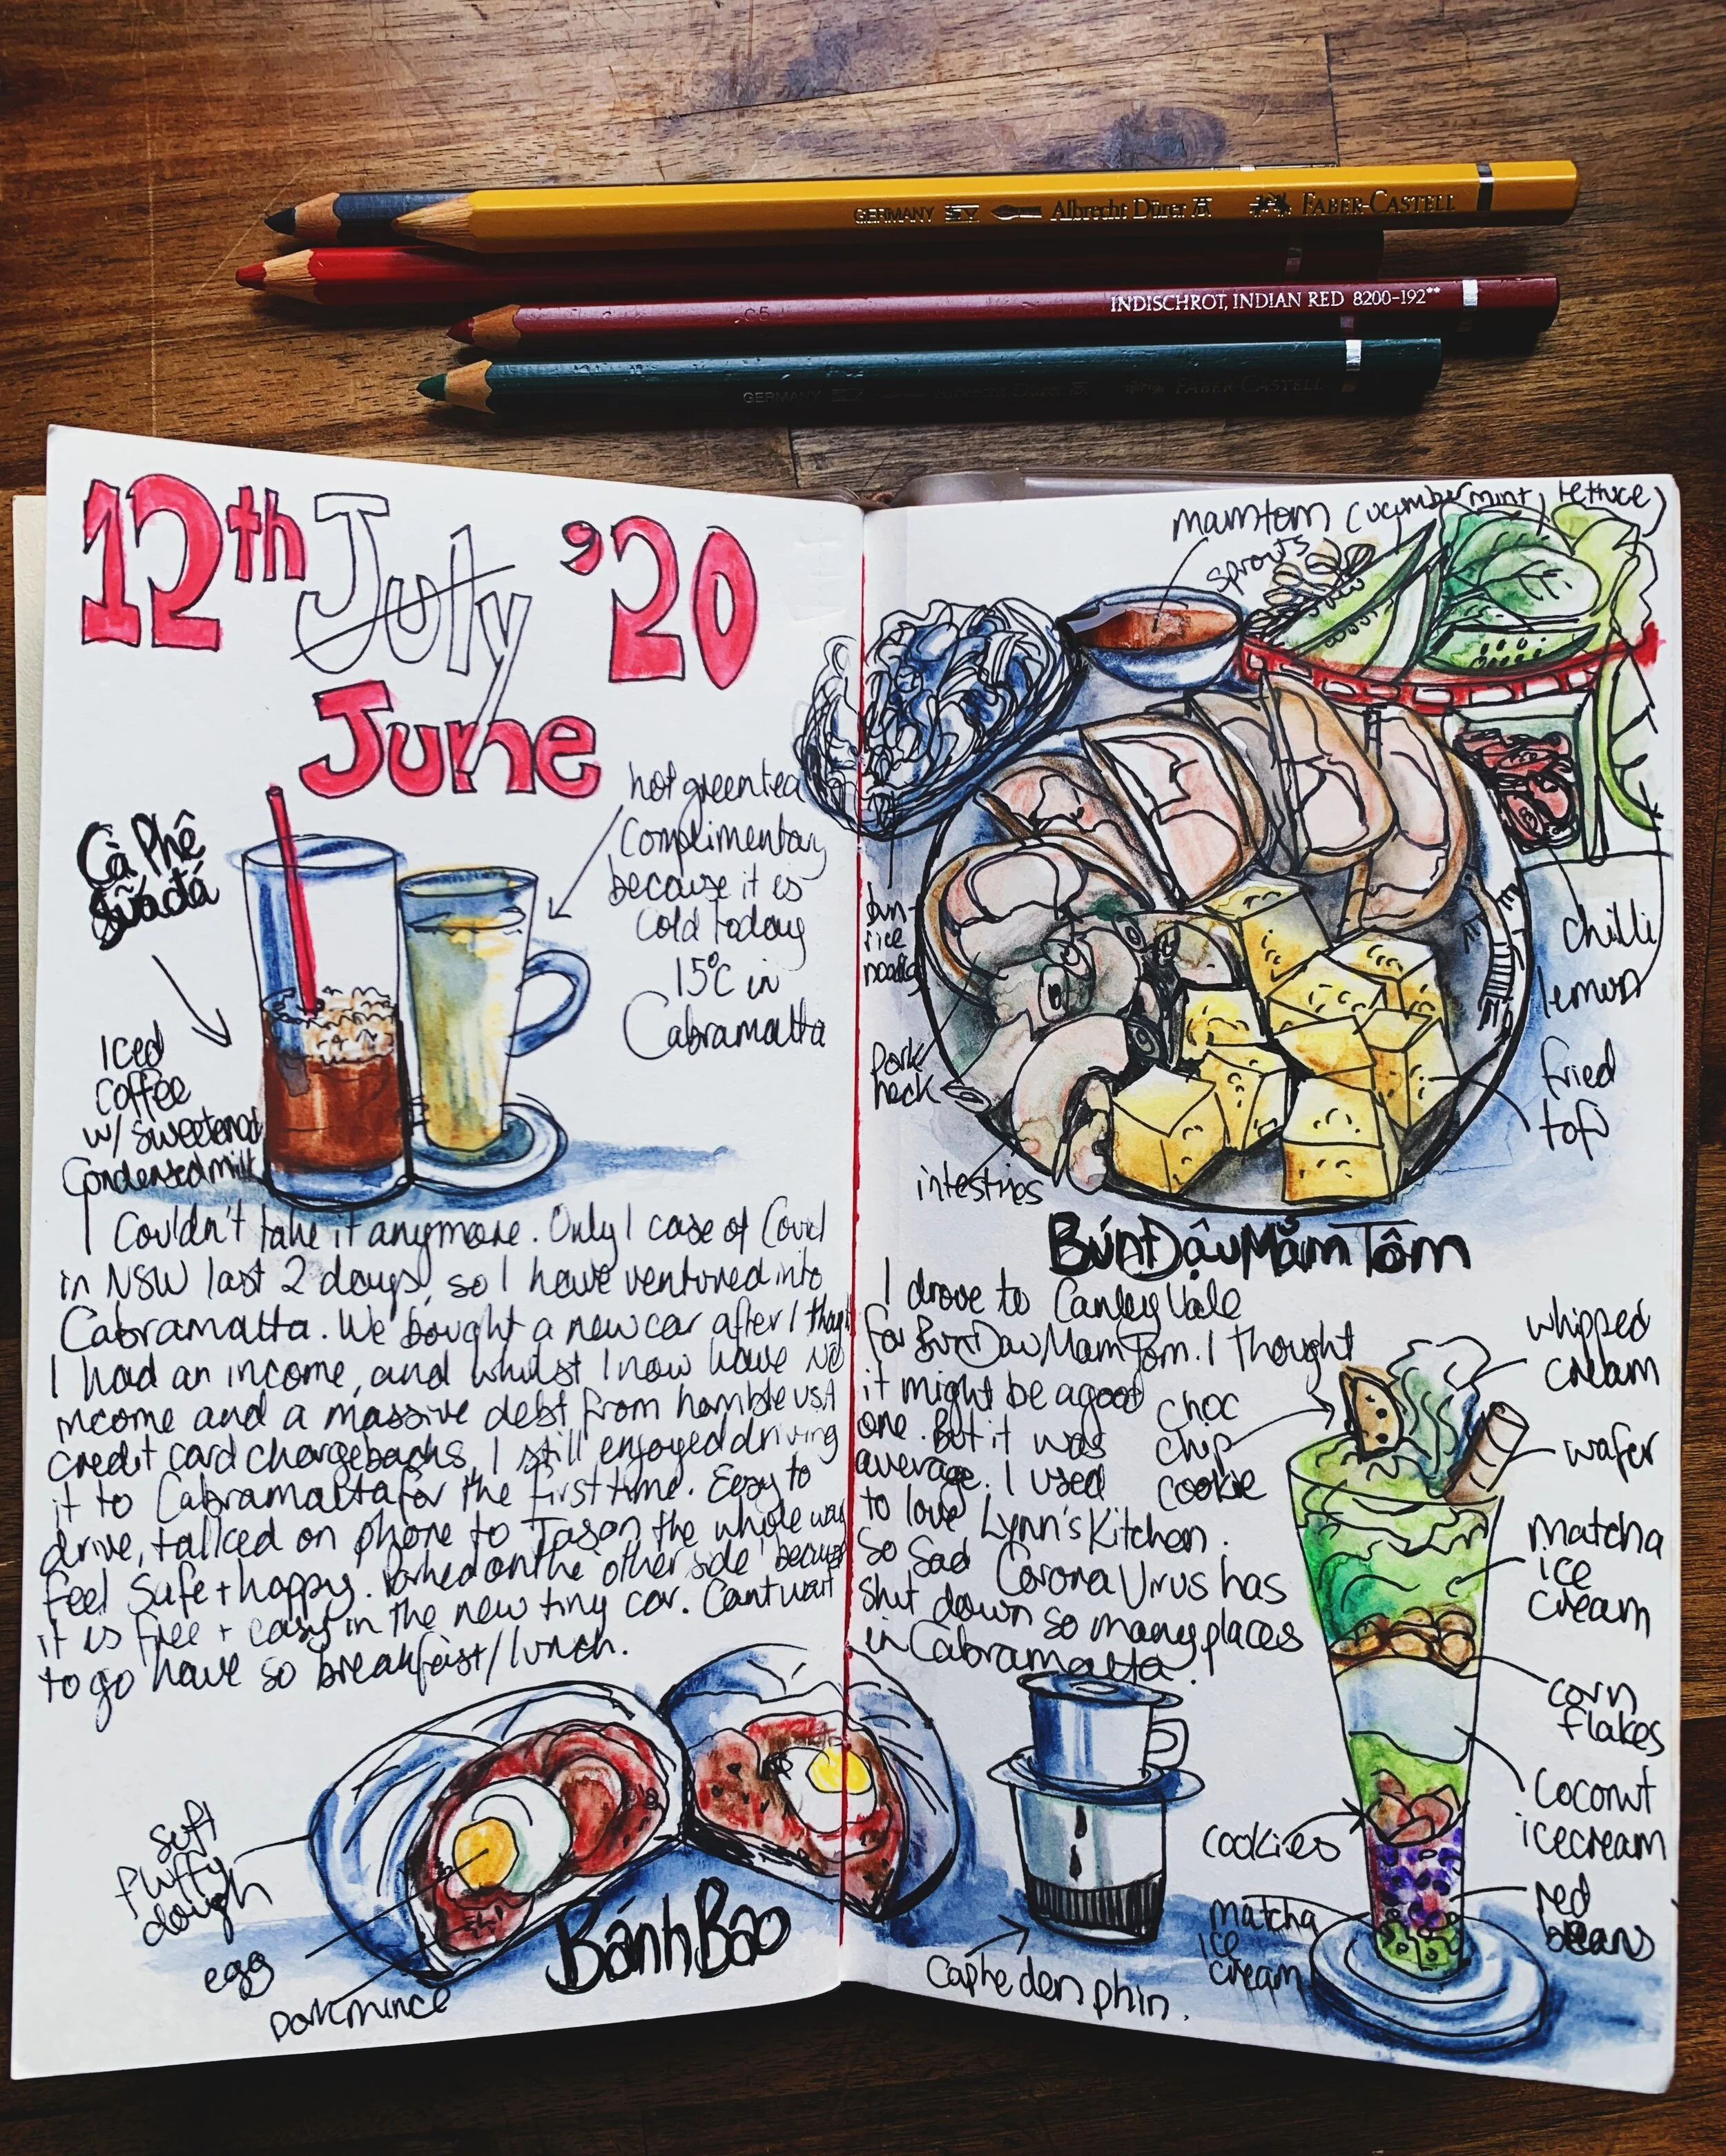 GERMANY Albrecht Dürer FABER-CASTELL
INDISCHROT, INDIAN RED 8200-192**
GERMANY Albrecht Dürer FABER-CASTELL
12th July '20
June
Cà Phê
Sữa đá
Iced
coffee
w/ sweetened
Condensed milk
hot green tea
Complimentary
because it is
cold today
15°C in
Cabramatta
I Couldn't take it anymore. Only 1 case of Covid
in NSW last 2 days, so I have ventured into
Cabramatta. We bought a new car after I thought
I had an income, and whilst I now have NO
income and a massive debt from horrible USA
credit card chargebacks, I still enjoyed driving
it to Cabramatta for the first time. Easy to
drive, talked on phone to Jason the whole way
feel safe + happy. Parked on the 'other side' because
it is free + easy in the new tiny car. Cant wait
to go have so breakfast/lunch.
soft
fluffy
dough
egg
pork mince
Bánh Bao
mamtom (cucumber mint, lettuce)
sprouts
bun-
rice
noodles
pork
hock
intestines
chilli
lemon
fried
tofu
Bún Đậu Mắm Tôm
I drove to Canley Vale
for Bun Dau Mam Tom. I thought
it might be a good
one. But it was
average. I used
to love Lynn's Kitchen.
So Sad Corona Virus has
shut down so many places
in Cabramatta.
choc
chip
cookie
whipped
cream
wafer
matcha
ice
cream
corn
flakes
coconut
icecream
cookies
red
beans
matcha
ice
cream
Caphe den phin.